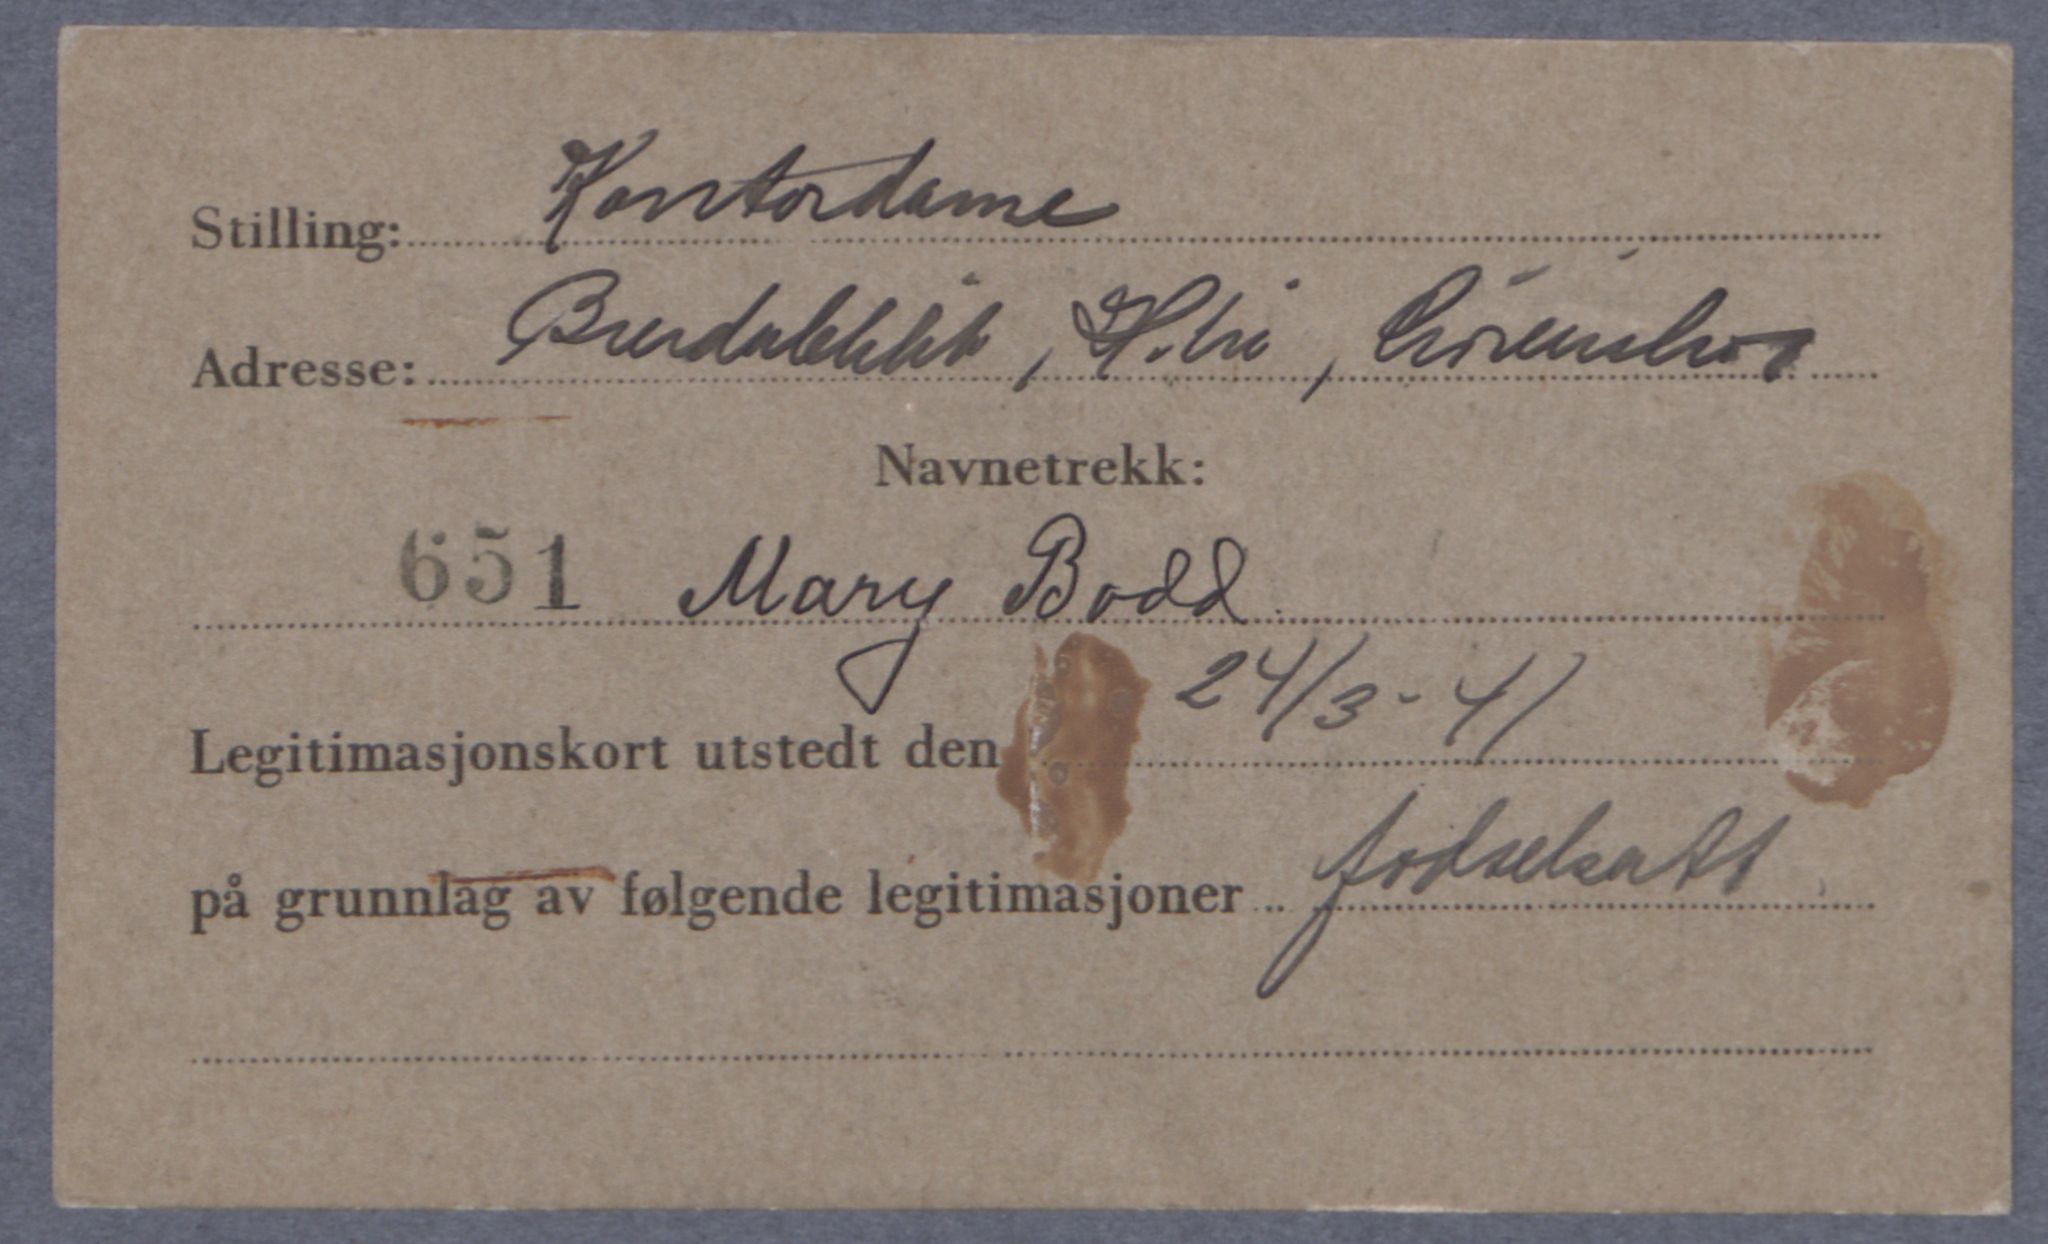 Stilling: Kontordame
Adresse: Lørenskog
Navnetrekk:
651 Mary Bodd
24/3-41
Legitimasjonskort utstedt den
på grunnlag av følgende legitimasjoner fødselsatt